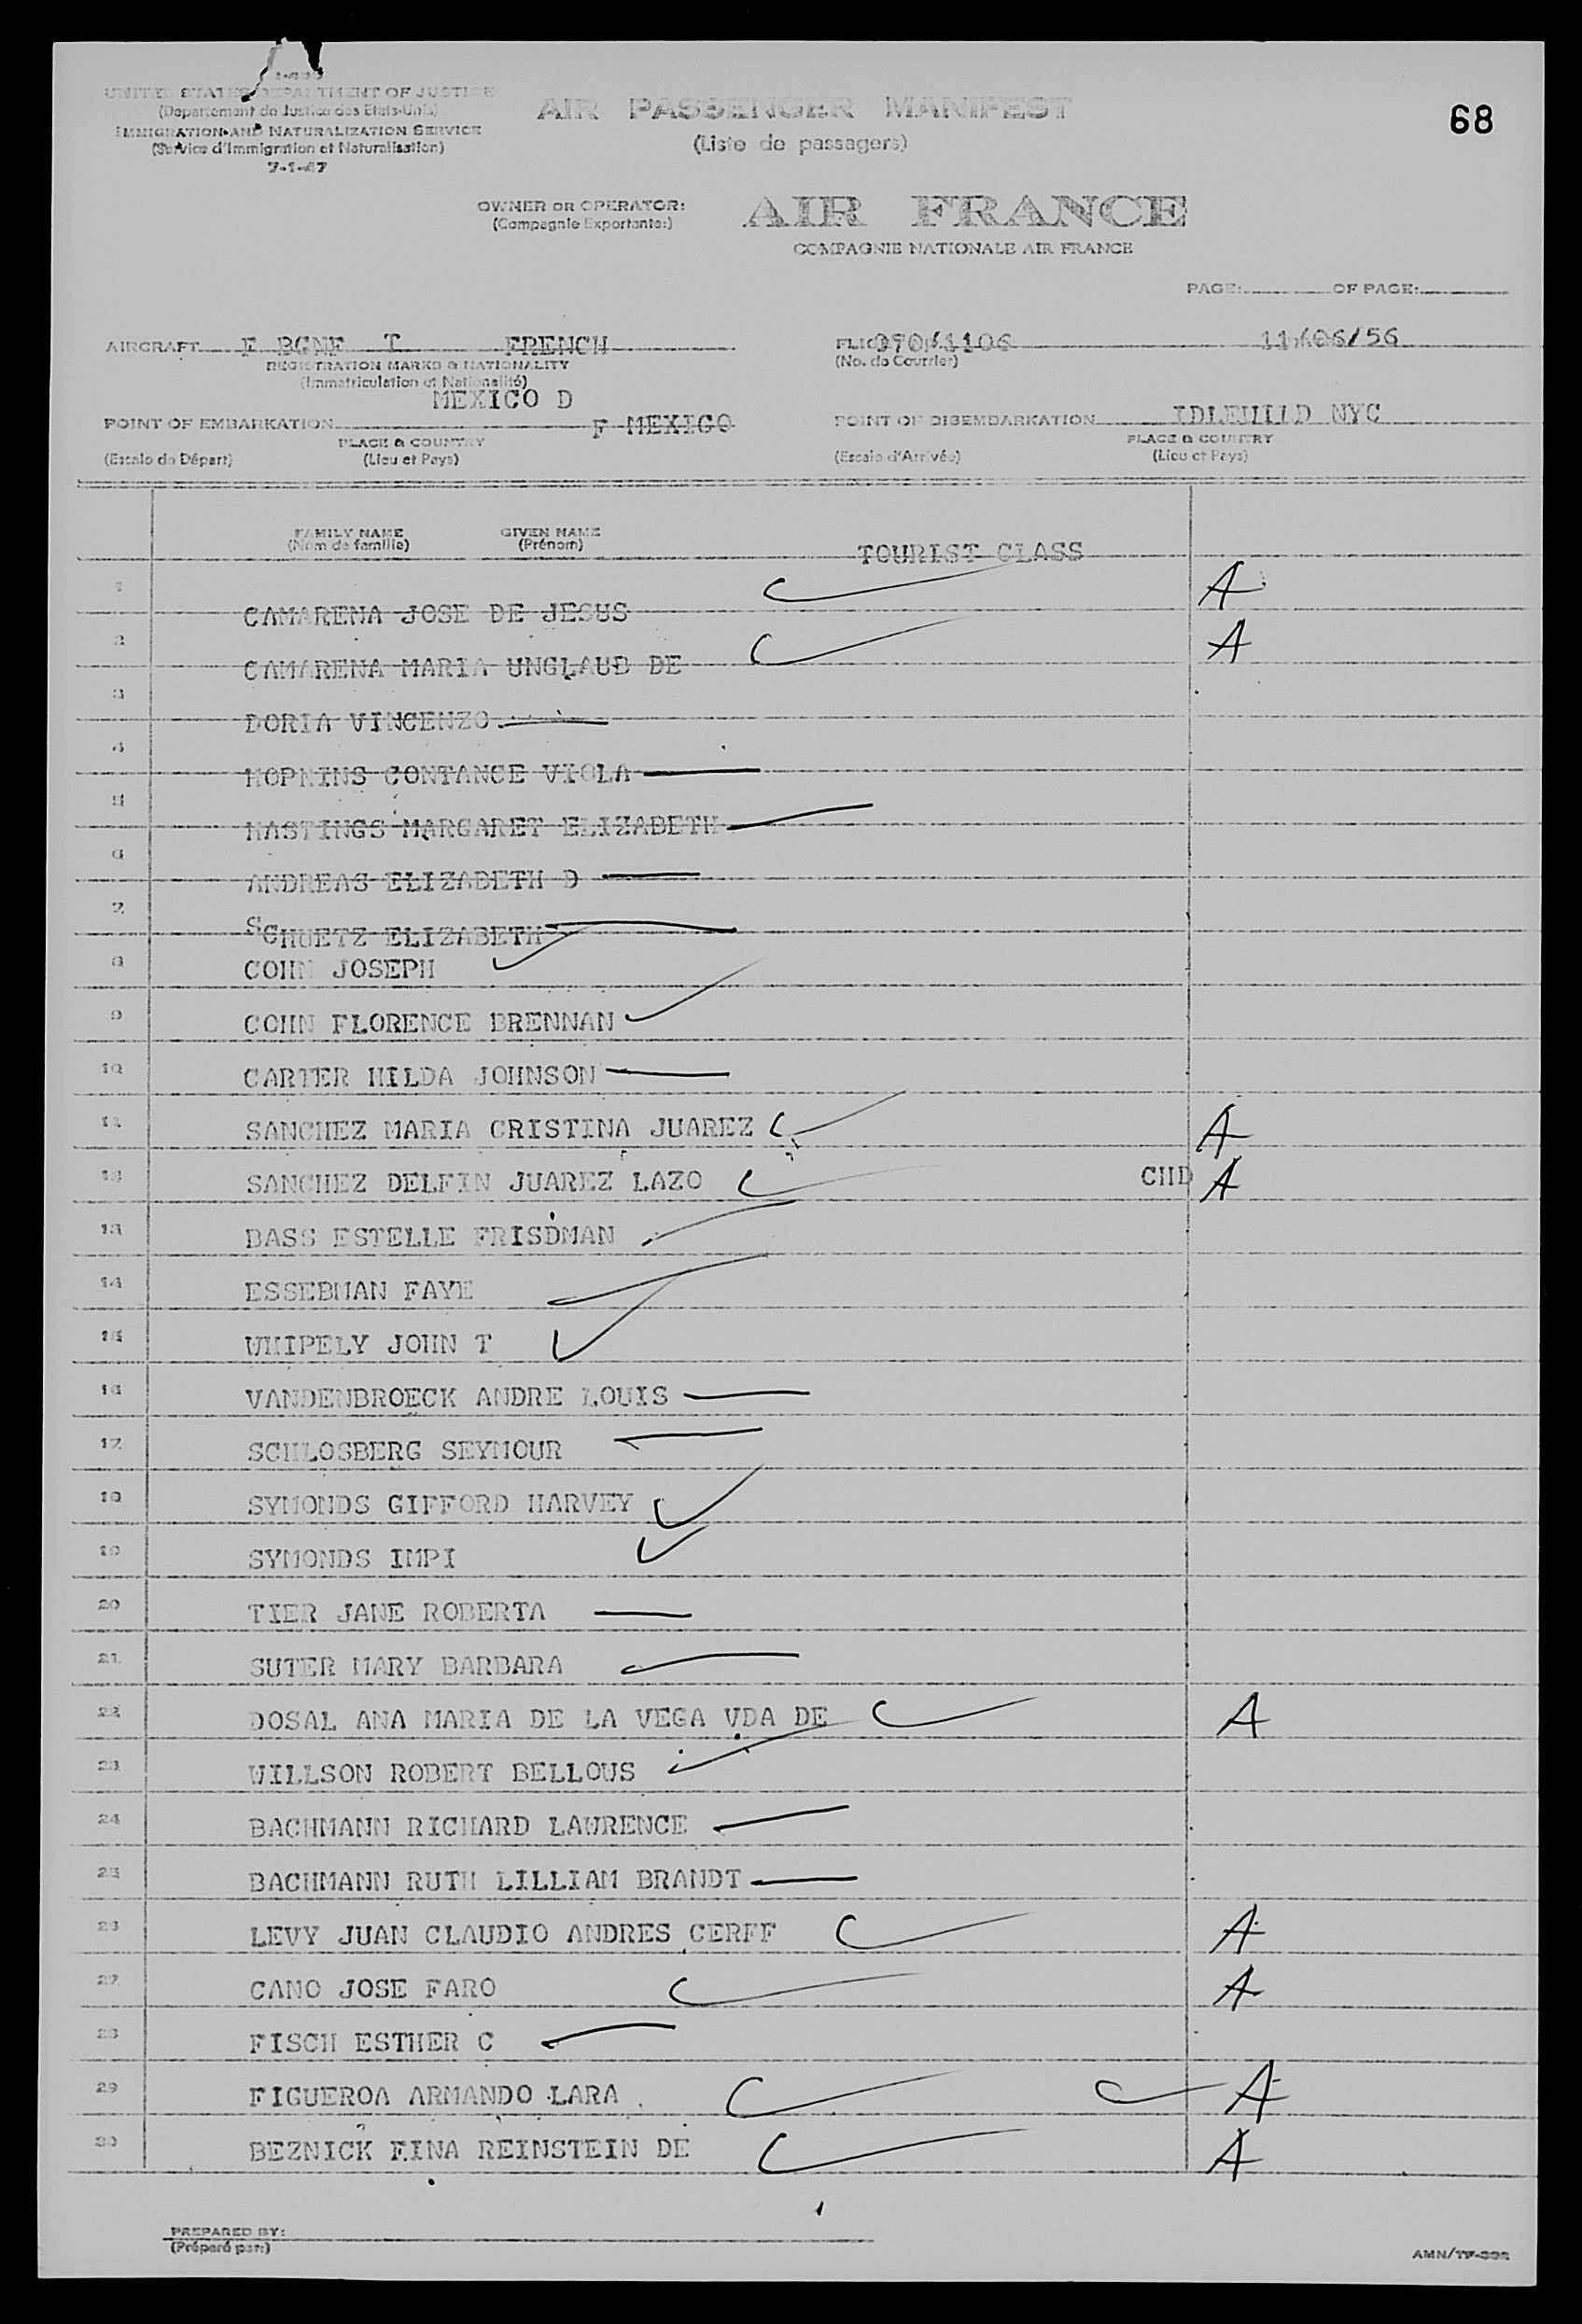 68
I-433
UNITED STATES DEPARTMENT OF JUSTICE
(Departement de Justice des Etats-Unis)
IMMIGRATION AND NATURALIZATION SERVICE
(Service d'Immigration et Naturalisation)
7-1-47
AIR PASSENGER MANIFEST
(Liste de passagers)
OWNER OR OPERATOR:
(Compagnie Exportante:)
AIR FRANCE
COMPAGNIE NATIONALE AIR FRANCE
PAGE: OF PAGE:
AIRCRAFT F BGNF T FRENCH
REGISTRATION MARKS & NATIONALITY
(Immatriculation et Nationalité)
070/1106 11/06/56
(No. de Courrier)
MEXICO D
POINT OF EMBARKATION F MEXICO
PLACE & COUNTRY
(Escale de Départ) (Lieu et Pays)
POINT OF DISEMBARKATION IDLEWILD NYC
PLACE & COUNTRY
(Escale d'Arrivée) (Lieu et Pays)
FAMILY NAME GIVEN NAME
(Nom de famille) (Prénom)
TOURIST CLASS
1 CAMARENA JOSE DE JESUS A
2 CAMARENA MARIA UNGLAUB DE A
3 DORIA VINCENZO
4 HOPKINS CONTANCE VIOLA
5 HASTINGS MARGARET ELIZABETH
6 ANDREAS ELIZABETH D
7 SCHUETZ ELIZABETH
8 COHN JOSEPH
9 COHN FLORENCE BRENNAN
10 CARTER HILDA JOHNSON
11 SANCHEZ MARIA CRISTINA JUAREZ A
12 SANCHEZ DELFIN JUAREZ LAZO CHD A
13 BASS ESTELLE FRISDMAN
14 ESSEBMAN FAYE
15 WHIPELY JOHN T
16 VANDENBROECK ANDRE LOUIS
17 SCHLOSBERG SEYMOUR
18 SYMONDS GIFFORD HARVEY
19 SYMONDS IMPI
20 TIER JANE ROBERTA
21 SUTER MARY BARBARA
22 DOSAL ANA MARIA DE LA VEGA VDA DE A
23 WILLSON ROBERT BELLOWS
24 BACHMANN RICHARD LAWRENCE
25 BACHMANN RUTH LILLIAM BRANDT
26 LEVY JUAN CLAUDIO ANDRES CERFF A
27 CANO JOSE FARO A
28 FISCH ESTHER C
29 FIGUEROA ARMANDO LARA A
30 BEZNICK FINA REINSTEIN DE A
PREPARED BY:
(Préparé par:)